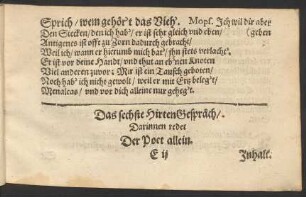 Sprich/ wem gehör't das Vieh. Mopf. Ich wil dir aber
Den Stecken/ den ich hab'/ er ist sehr gleich und eben/ (geben
Antigenes ist offt zu Zorn dadurch gebracht/
Weil ich/ wann er hierumb mich bat'/ ihn stets verlacht'.
Er ist vor deine Handt/ und thut an eb'nen Knoten
Viel anderen zuvor; Mir ist ein Tausch geboten/
Noch hab' ich nicht gewolt/ weil er mit Ertz beleg't/
Menalcas/ und vor dich alleine nur geheg't.
Das sechste HirtenGespräch/.
Darinnen redet
Der Poet allein.
E ij Inhalt.